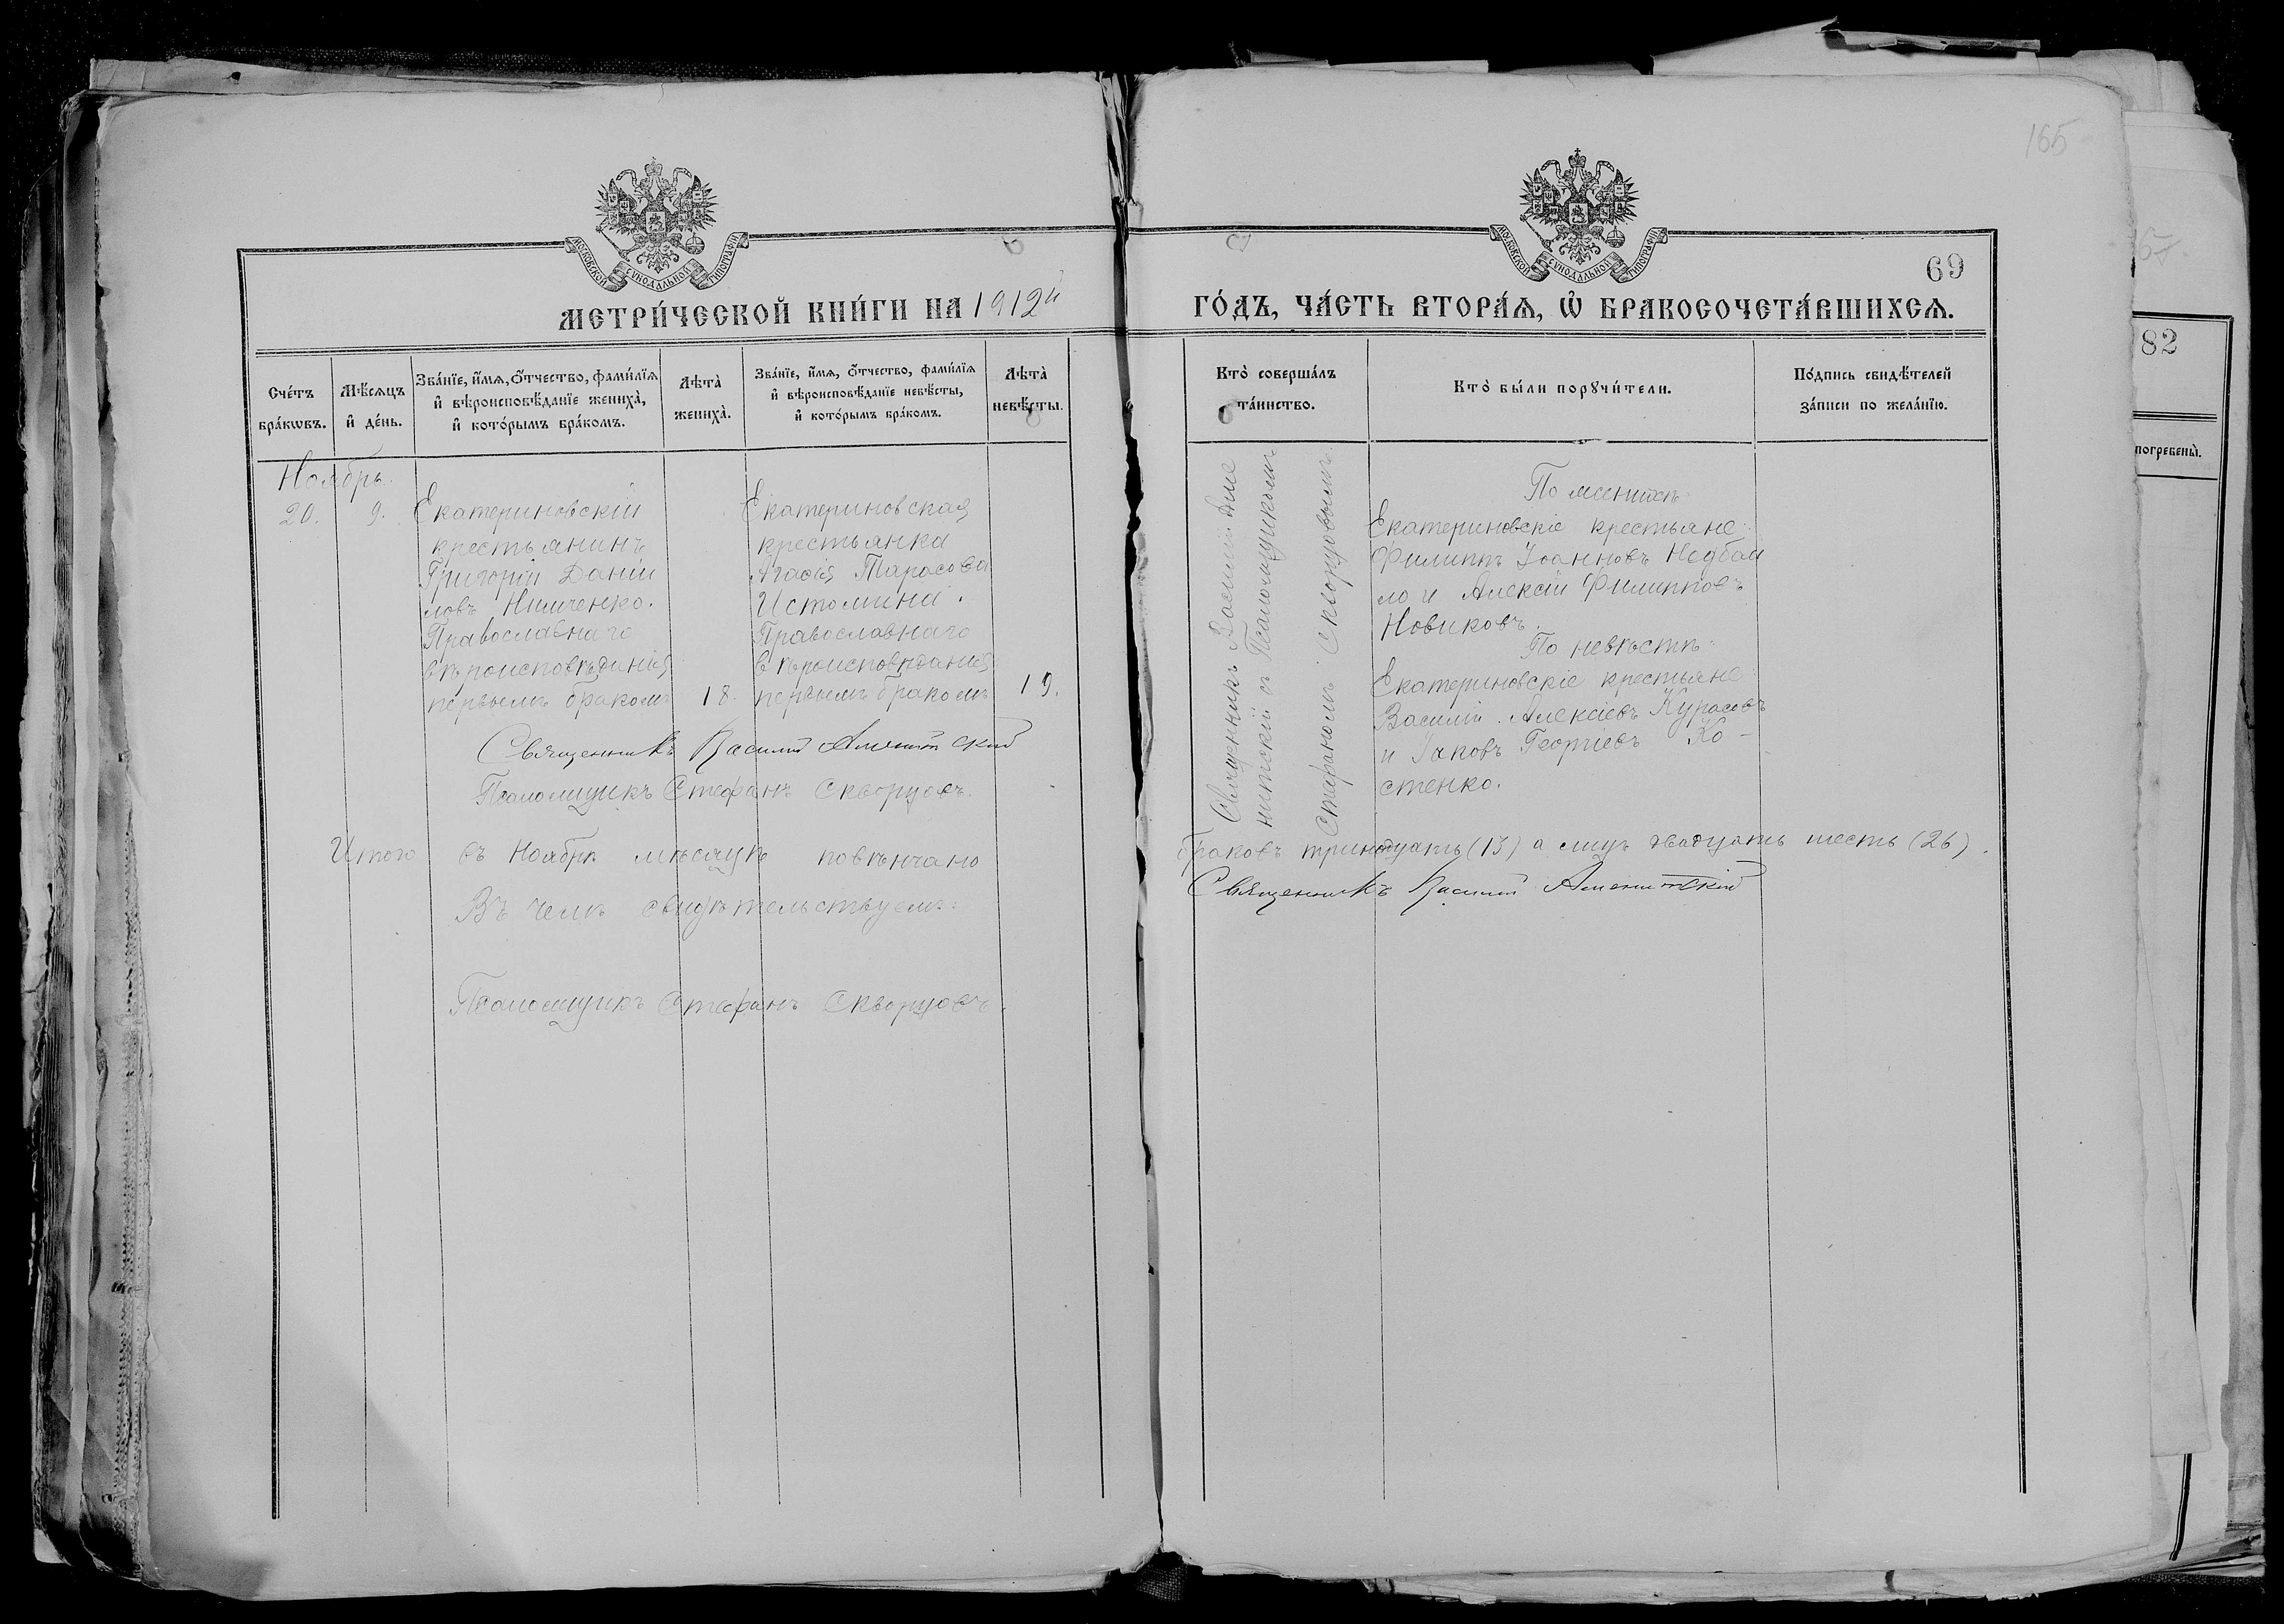 165
МОСКОВСКОЙ СѴНОДАЛЬНОЙ ТИПОГРАФІИ
МОСКОВСКОЙ СѴНОДАЛЬНОЙ ТИПОГРАФІИ
69
МЕТРИ́ЧЕСКОЙ КНИ́ГИ НА 1912й
ГО́ДЪ, ЧА́СТЬ ВТОРА́Ѧ, Ѡ҆ БРАКОСОЧЕТА́ВШИХСѦ.
Сче́тъ
бра́кѡвъ.
Мѣ́сѧцъ
и҆ де́нь.
Зва́нїе, и҆́мѧ, ѻ҆́тчество, фами́лїѧ
и҆ вѣроисповѣ́данїе жениха̀,
и҆ кото́рымъ бра́комъ.
Лѣта̀
жениха̀.
Зва́нїе, и҆́мѧ, ѻ҆́тчество, фами́лїѧ
и҆ вѣроисповѣ́данїе невѣ́сты,
и҆ кото́рымъ бра́комъ.
Лѣта̀
невѣ́сты.
Кто̀ соверша́лъ
та́инство.
Кто̀ бы́ли порꙋчи́тели.
По́дпись свидѣ́телей
за́писи по жела́нїю.
Ноябрь.
20.
9.
Екатериновскій
крестьянинъ
Григорій Даніи
ловъ Нимченко.
Православнаго
вѣроисповѣданія
первымъ бракомъ
18.
Екатериновская
крестьянка
Агафія Тарасова
Истомина.
Православнаго
вѣроисповѣданія
первымъ бракомъ
19.
Священникъ Василій Аме
нитскій съ Псаломщикомъ
Стефаномъ Скворцовымъ.
По женихѣ:
Екатериновскіе крестьяне:
Филиппъ Іоанновъ Недбай
ло и Алексій Филипповъ
Новиковъ.
По невѣстѣ:
Екатериновскіе крестьяне:
Василій Алексіевъ Курасовъ
и Іаковъ Георгіевъ Ко-
стенко.
Священникъ Василій Аменитскій
Псаломщикъ Стефанъ Скворцовъ.
Итого въ Ноябрѣ мѣсяцѣ повѣнчано
браковъ тринадцать (13) а лицъ двадцать шесть (26).
Въ чемъ свидѣтельствуемъ:
Священникъ Василій Аменитскій
Псаломщикъ Стефанъ Скворцовъ.
82
погребены̀.